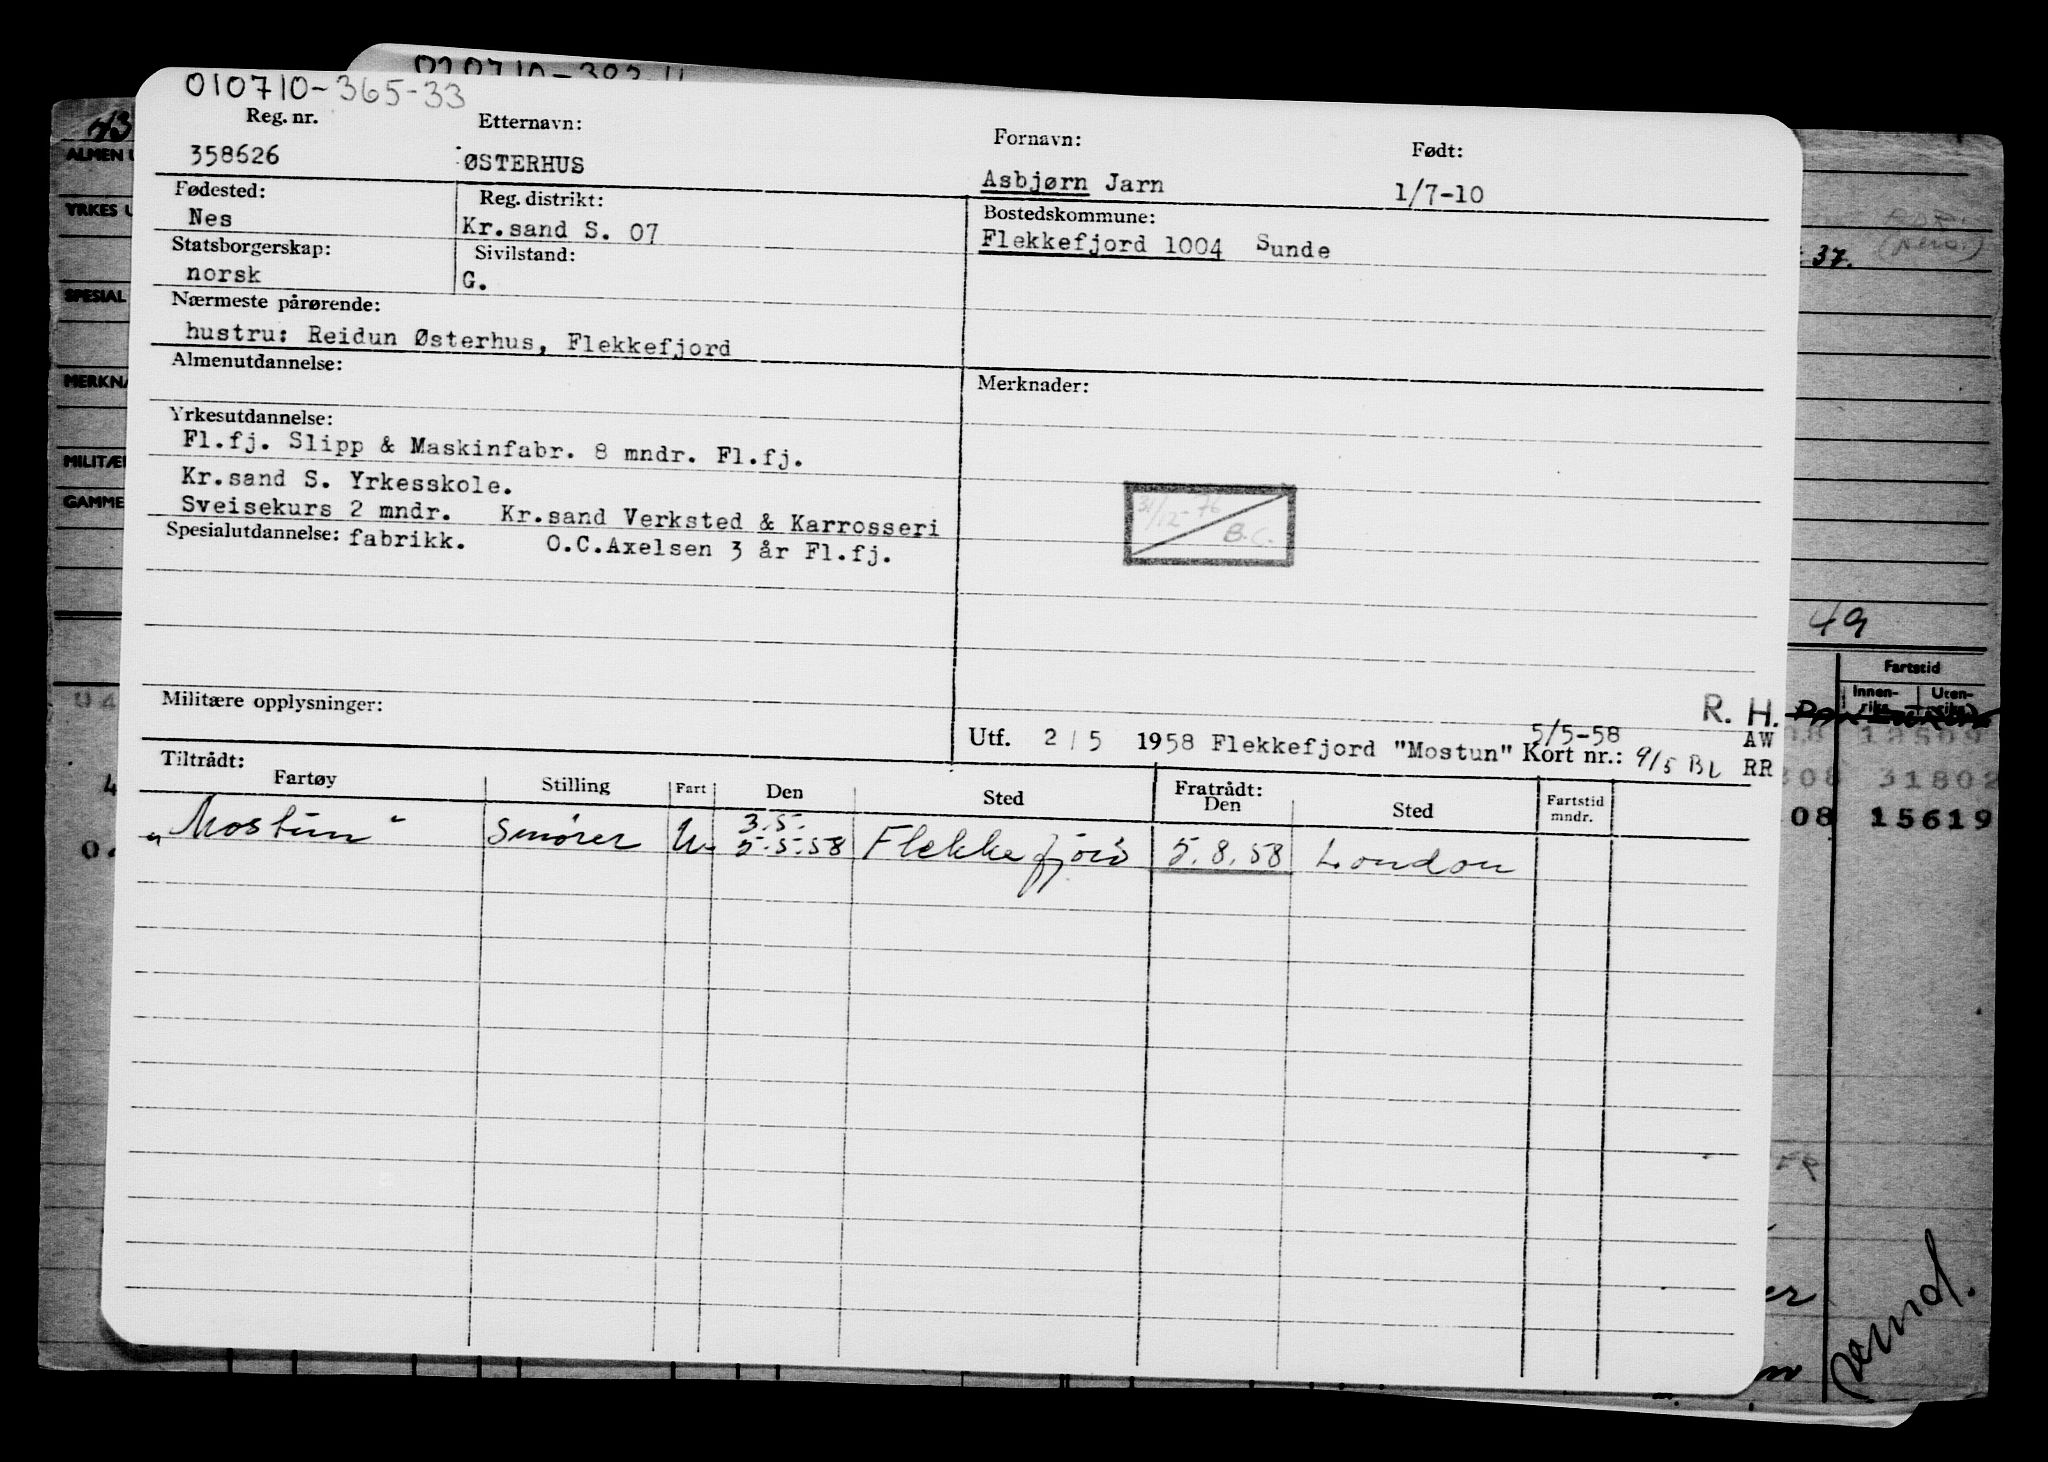 010710-365-33
Reg. nr. Etternavn: Fornavn: Født:
358626 ØSTERHUS Asbjørn Jarn 1/7-10
Fødested: Reg. distrikt: Bostedskommune:
Nes Kr.sand S. 07 Flekkefjord 1004 Sunde
Statsborgerskap: Sivilstand:
norsk G.
Nærmeste pårørende:
hustru: Reidun Østerhus, Flekkefjord
Almenutdannelse: Merknader:
Yrkesutdannelse:
Fl.fj. Slipp & Maskinfabr. 8 mndr. Fl.fj.
Kr.sand S. Yrkesskole.
Sveisekurs 2 mndr. Kr.sand Verksted & Karrosseri
Spesialutdannelse: fabrikk. O.C.Axelsen 3 år Fl.fj.
31/12-76 B.C.
Militære opplysninger:
R. H.
5/5-58 AW
Utf. 2/5 1958 Flekkefjord "Mostun" Kort nr.: 9/5 BL RR
Tiltrådt: Fratrådt:
Fartøy Stilling Fart Den Sted Den Sted Fartstid mndr.
3.5.
"Mostun" Smører U. 5.5.58 Flekkefjord 5.8.58 London
43
ALMEN U
YRKES U
SPESIAL
MERKNA
MILITÆR
GAMME
37.
49
Fartstid
Innen-
rike
Uten-
rike
08 12509
808 31802
08 15619